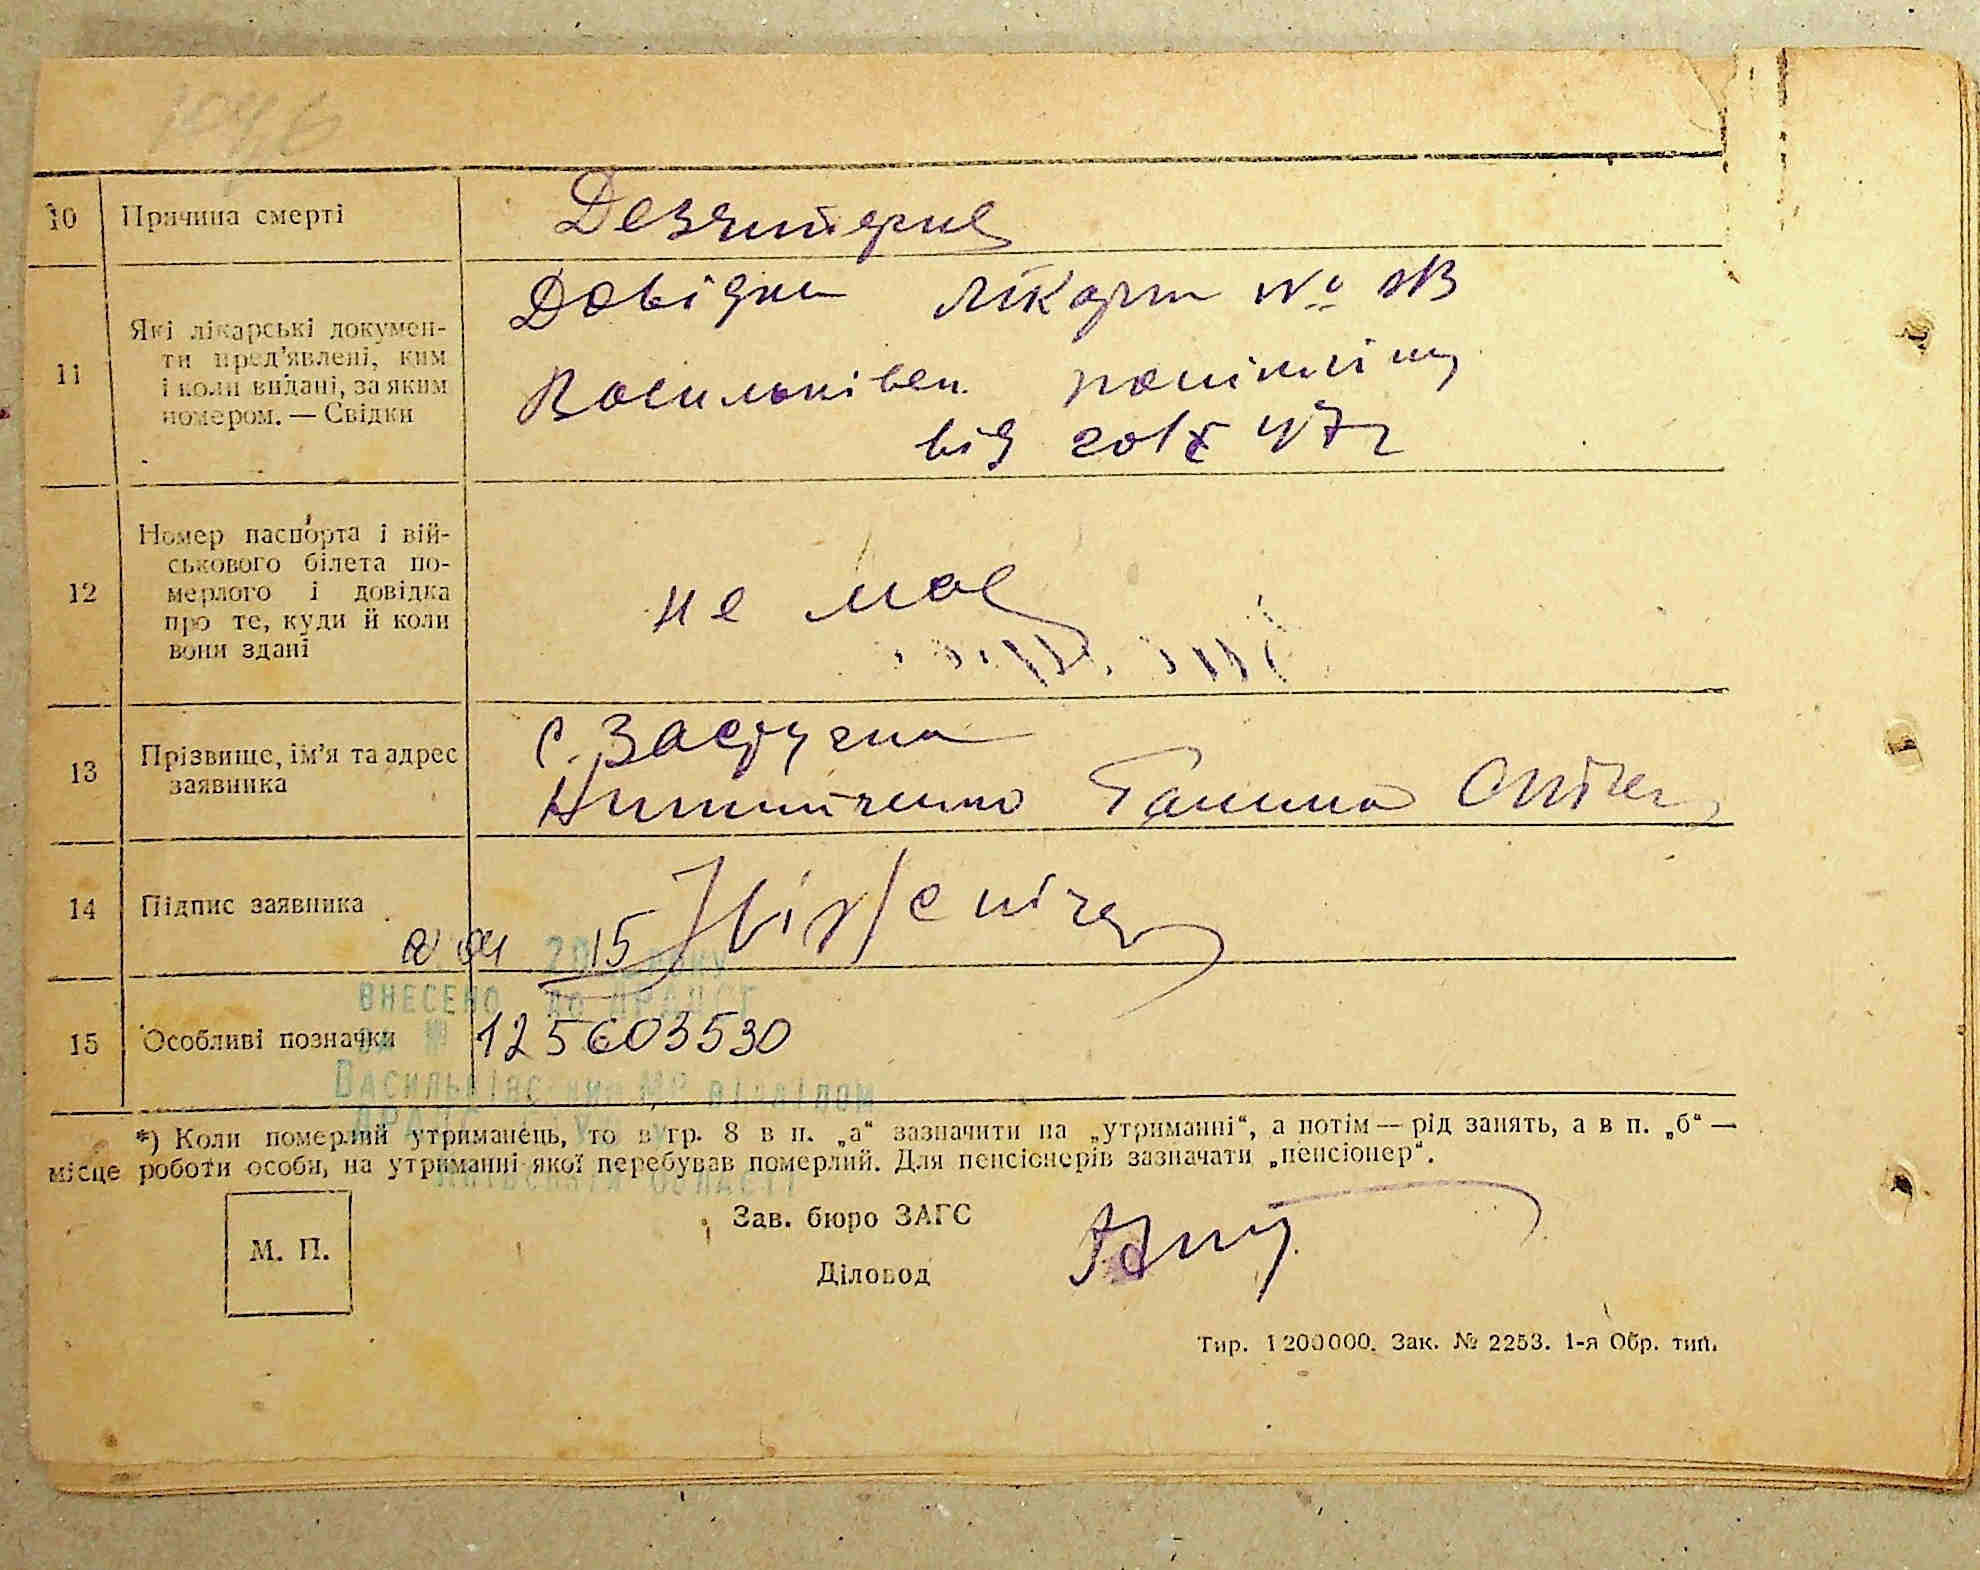 10 Причина смерті Дезинтерия
11 Які лікарські докумен-
ти пред’явлені, ким
і коли видані, за яким
номером. — Свідки
Довідка лікаря №
Васильківск. поліклініки
від 20/X 47 г
12 Номер паспорта і вій-
ськового білета по-
мерлого і довідка
про те, куди й коли
вони здані
не має
13 Прізвище, ім’я та адрес
заявника
с. Застугна
Галина
14 Підпис заявника
04 2015 року
внесено до ДРАЦСГ
за № 125603530
15 Особливі позначки
Васильківським МР відділом
Київській області
*) Коли померлий утриманець, то в гр. 8 в п. „а“ зазначити на „утриманні“, а потім — рід занять, а в п. „б“ —
місце роботи особи, на утриманні якої перебував померлий. Для пенсіонерів зазначати „пенсіонер“.
М. П.
Зав. бюро ЗАГС
Діловод
Тир. 1200000. Зак. № 2253. 1-я Обр. тип.